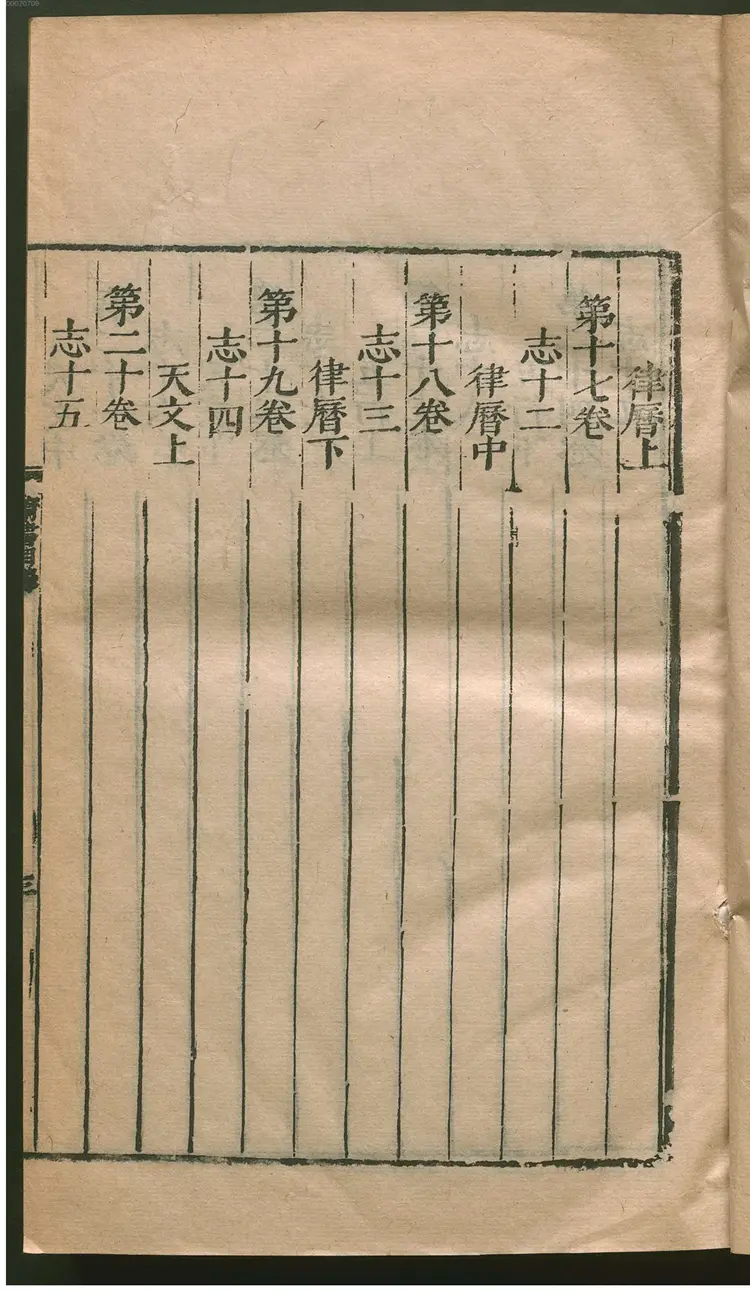 律曆上
第十七卷
志十二
律曆中
第十八卷
志十三
律曆下
第十九卷
志十四
天文上
第二十卷
志十五
三